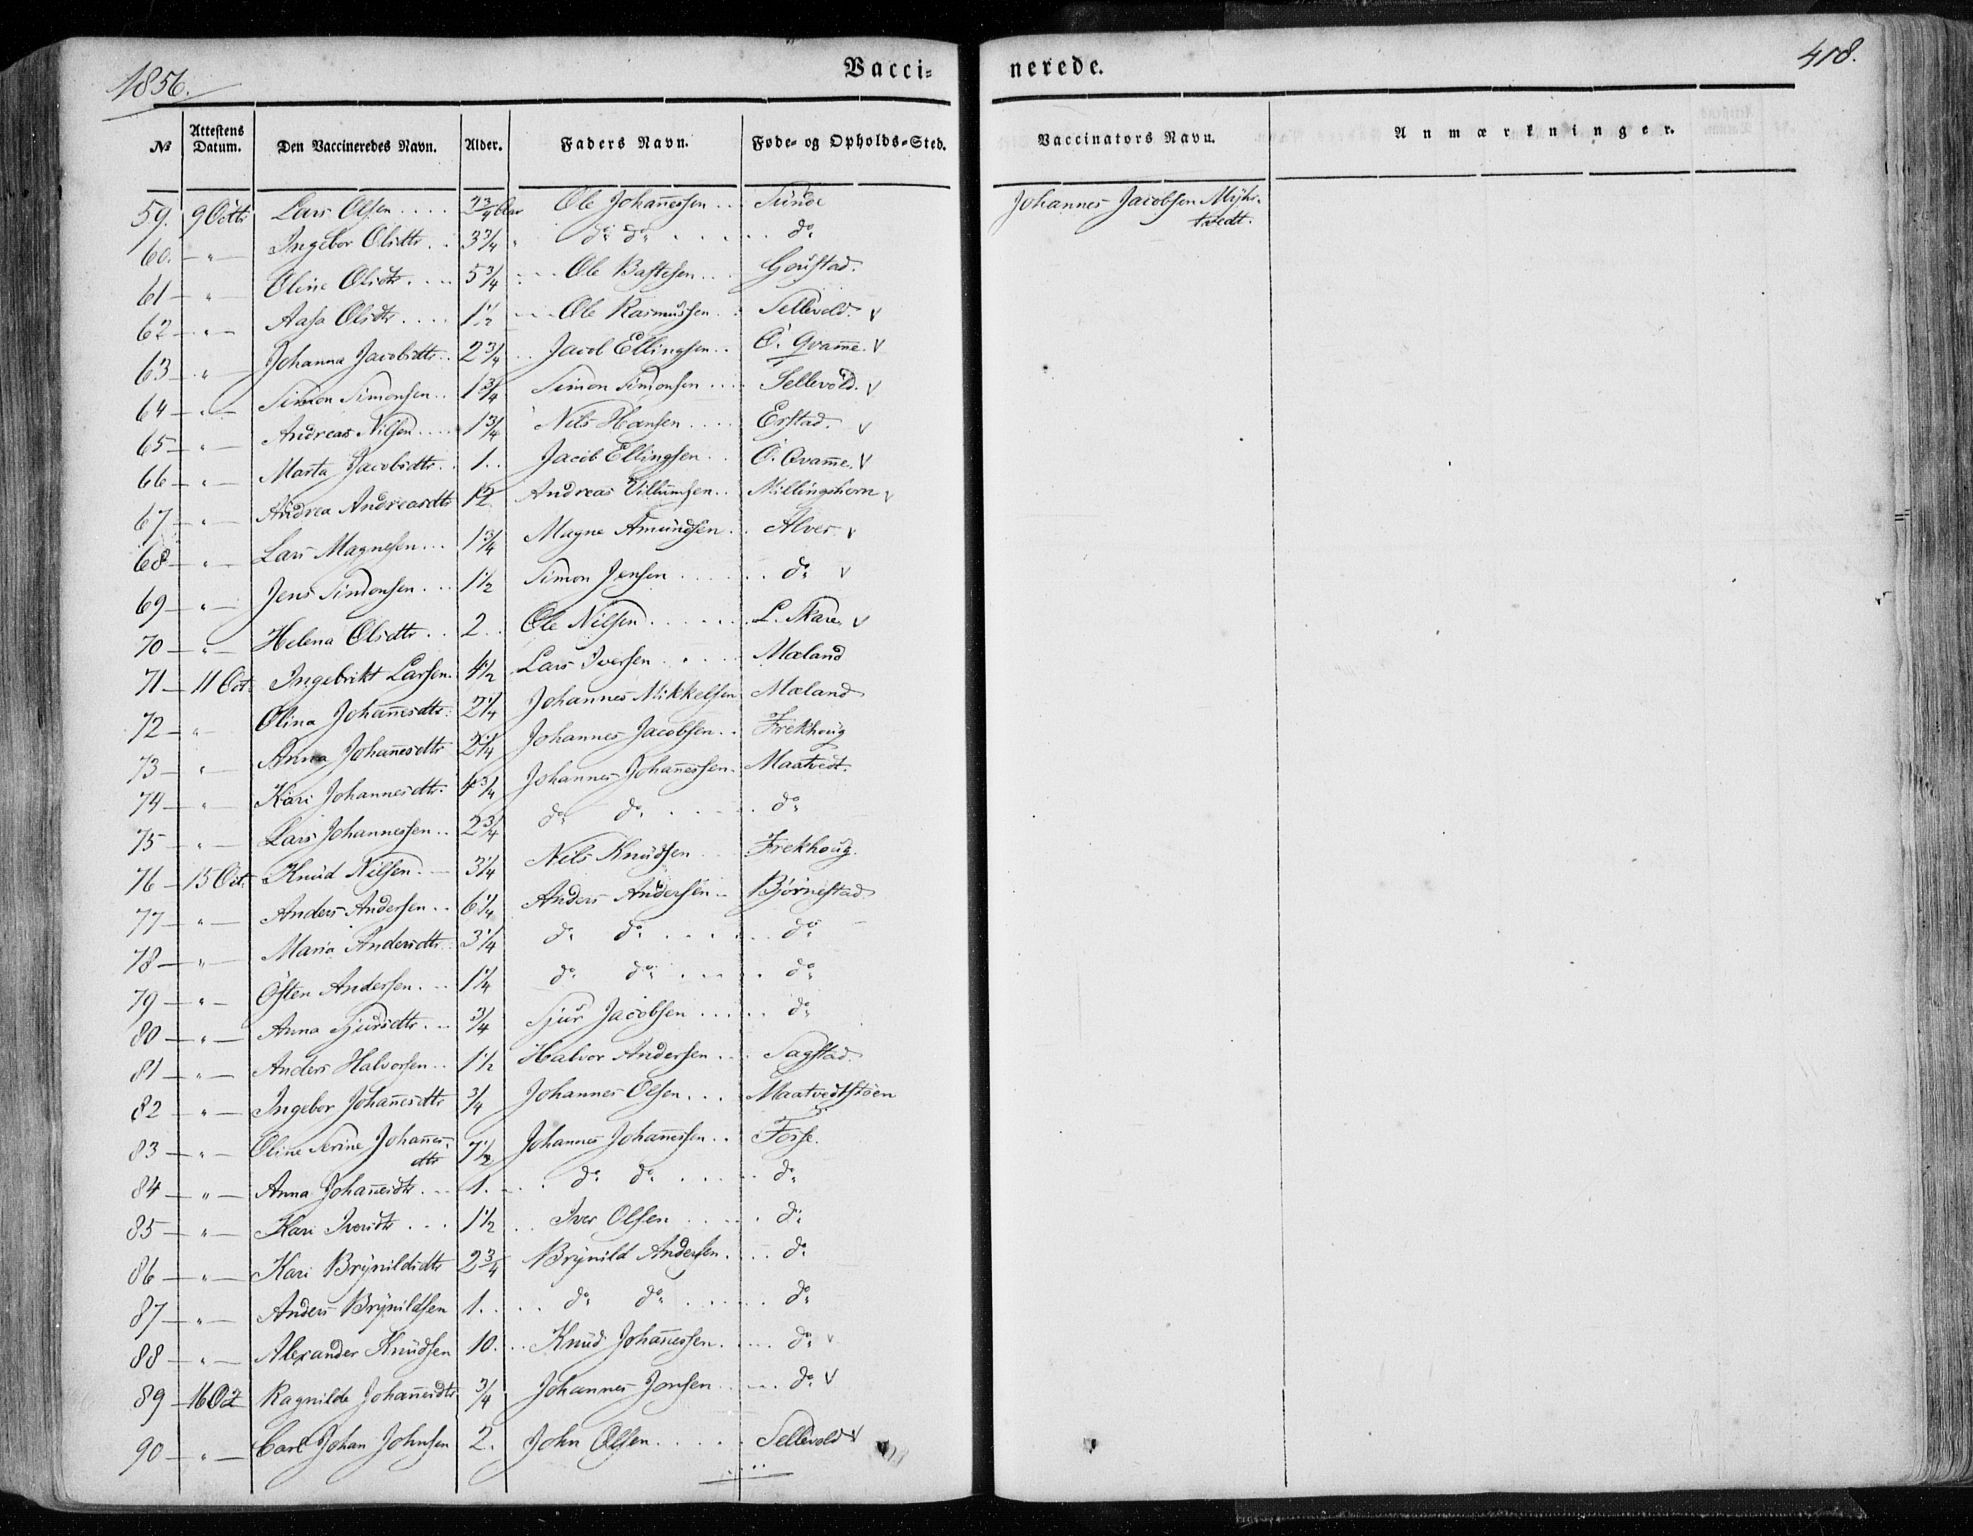 1856.
Vacci-
nerede.
418.
№ Attestens Datum. Den Vaccineredes Navn. Alder. Faders Navn. Føde- og Opholds-Sted. Vaccinators Navn. Anmærkninger.
59. 9 Octbr Lars Olsen .... 3 3/4 Aar Ole Johannessen .. Sunde Johannes Jacobsen Myhr-
tvedt.
60. — " — Ingebor Olsdtr .. 3 3/4 " do do ..... do
61 — " — Oline Olsdtr .... 5 3/4 .. Ole Bastesen ...
62 — " — Aasa Olsdtr .... 1 1/2 ... Ole Rasmussen .. Sellevold. v
63 — " — Johanna Jacobsdtr .. 2 3/4 .. Jacob Ellingsen .. Ö. Qvam̄e. v
64 — " — Simon Simonsen .. 1 3/4 Simon Simonsen .... Sellevold. v
65 — " — Andreas Nilsen .... 1 3/4 Nils Hansen .... Erstad. v
66 — " — Marta Jacobsdtr .. 1 .. Jacob Ellingsen .. Ö. Qvam̄e. v
67 — " — Andrea Andreasdtr 1 1/2 Andreas Villumsen .. Millingshorn v
68 — " — Lars Magnesen ... 1 3/4 Magne Amundsen .. Alver v
69 — " — Jens Simonsen ... 1 1/2 Simon Jensen ..... do v
70 — " — Helena Olsdtr .. 2 .. Ole Nilsen ...... L. Skare v
71 — 11 Oct. Ingebrikt Larsen. 4 1/2 Lars Iversen .... Mæland
72 — " Olina Johan̄esdtr. 2 1/4 Johannes Mikkelsen Mæland
73 — " — Anna Johan̄esdtr 2 1/4 Johannes Jacobsen .. Frekhoug
74 — " Kari Johannesdtr. 4 3/4 Johannes Johan̄essen. Maatvedt.
75 — " Lars Johannessen .. 2 3/4 do do ..... do
76 — 15 Oct. Knud Nilsen ... 3 1/4 Nils Knudsen .. Frekhoug.
77 — " — Anders Andersen .. 6 1/4 Anders Andersen .. Björnestad
78 — " — Maria Andersdtr. 3 1/4 do do ..... do
79 — " — Östen Andersen ... 1 1/4 do do .... do
80 — " — Anna Sjursdtr ... 3/4 Sjur Jacobsen ..... do
81 — " — Anders Halvorsen .. 1 1/2 Halvor Andersen ... Sagstad.
82 — " — Ingebor Johan̄esdtr 3/4 Johannes Olsen ... Maatvedtstöen
83 — " — Oline Serine Johan̄es-
dtr 7 1/2 Johannes Johan̄essen .. Fosse.
84 — " — Anna Johan̄esdtr ... 1. .. do do .... do
85 — " — Kari Iversdtr ... 1 1/2 .. Iver Olsen .... do
86 — " — Kari Brynildsdtr 2 3/4 Brynild Andersen ... do
87 — " — Anders Brynildsen 1. .. do do ..... do
88 — " — Alexander Knudsen 10. .. Knud Johan̄essen .... do v
89 — 16 Oct Ragnilde Johan̄esdtr 3/4 Johannes Jonsen .... do v
90 — " — Carl Johan Johnsen 2. John Olsen ..... Sellevold v